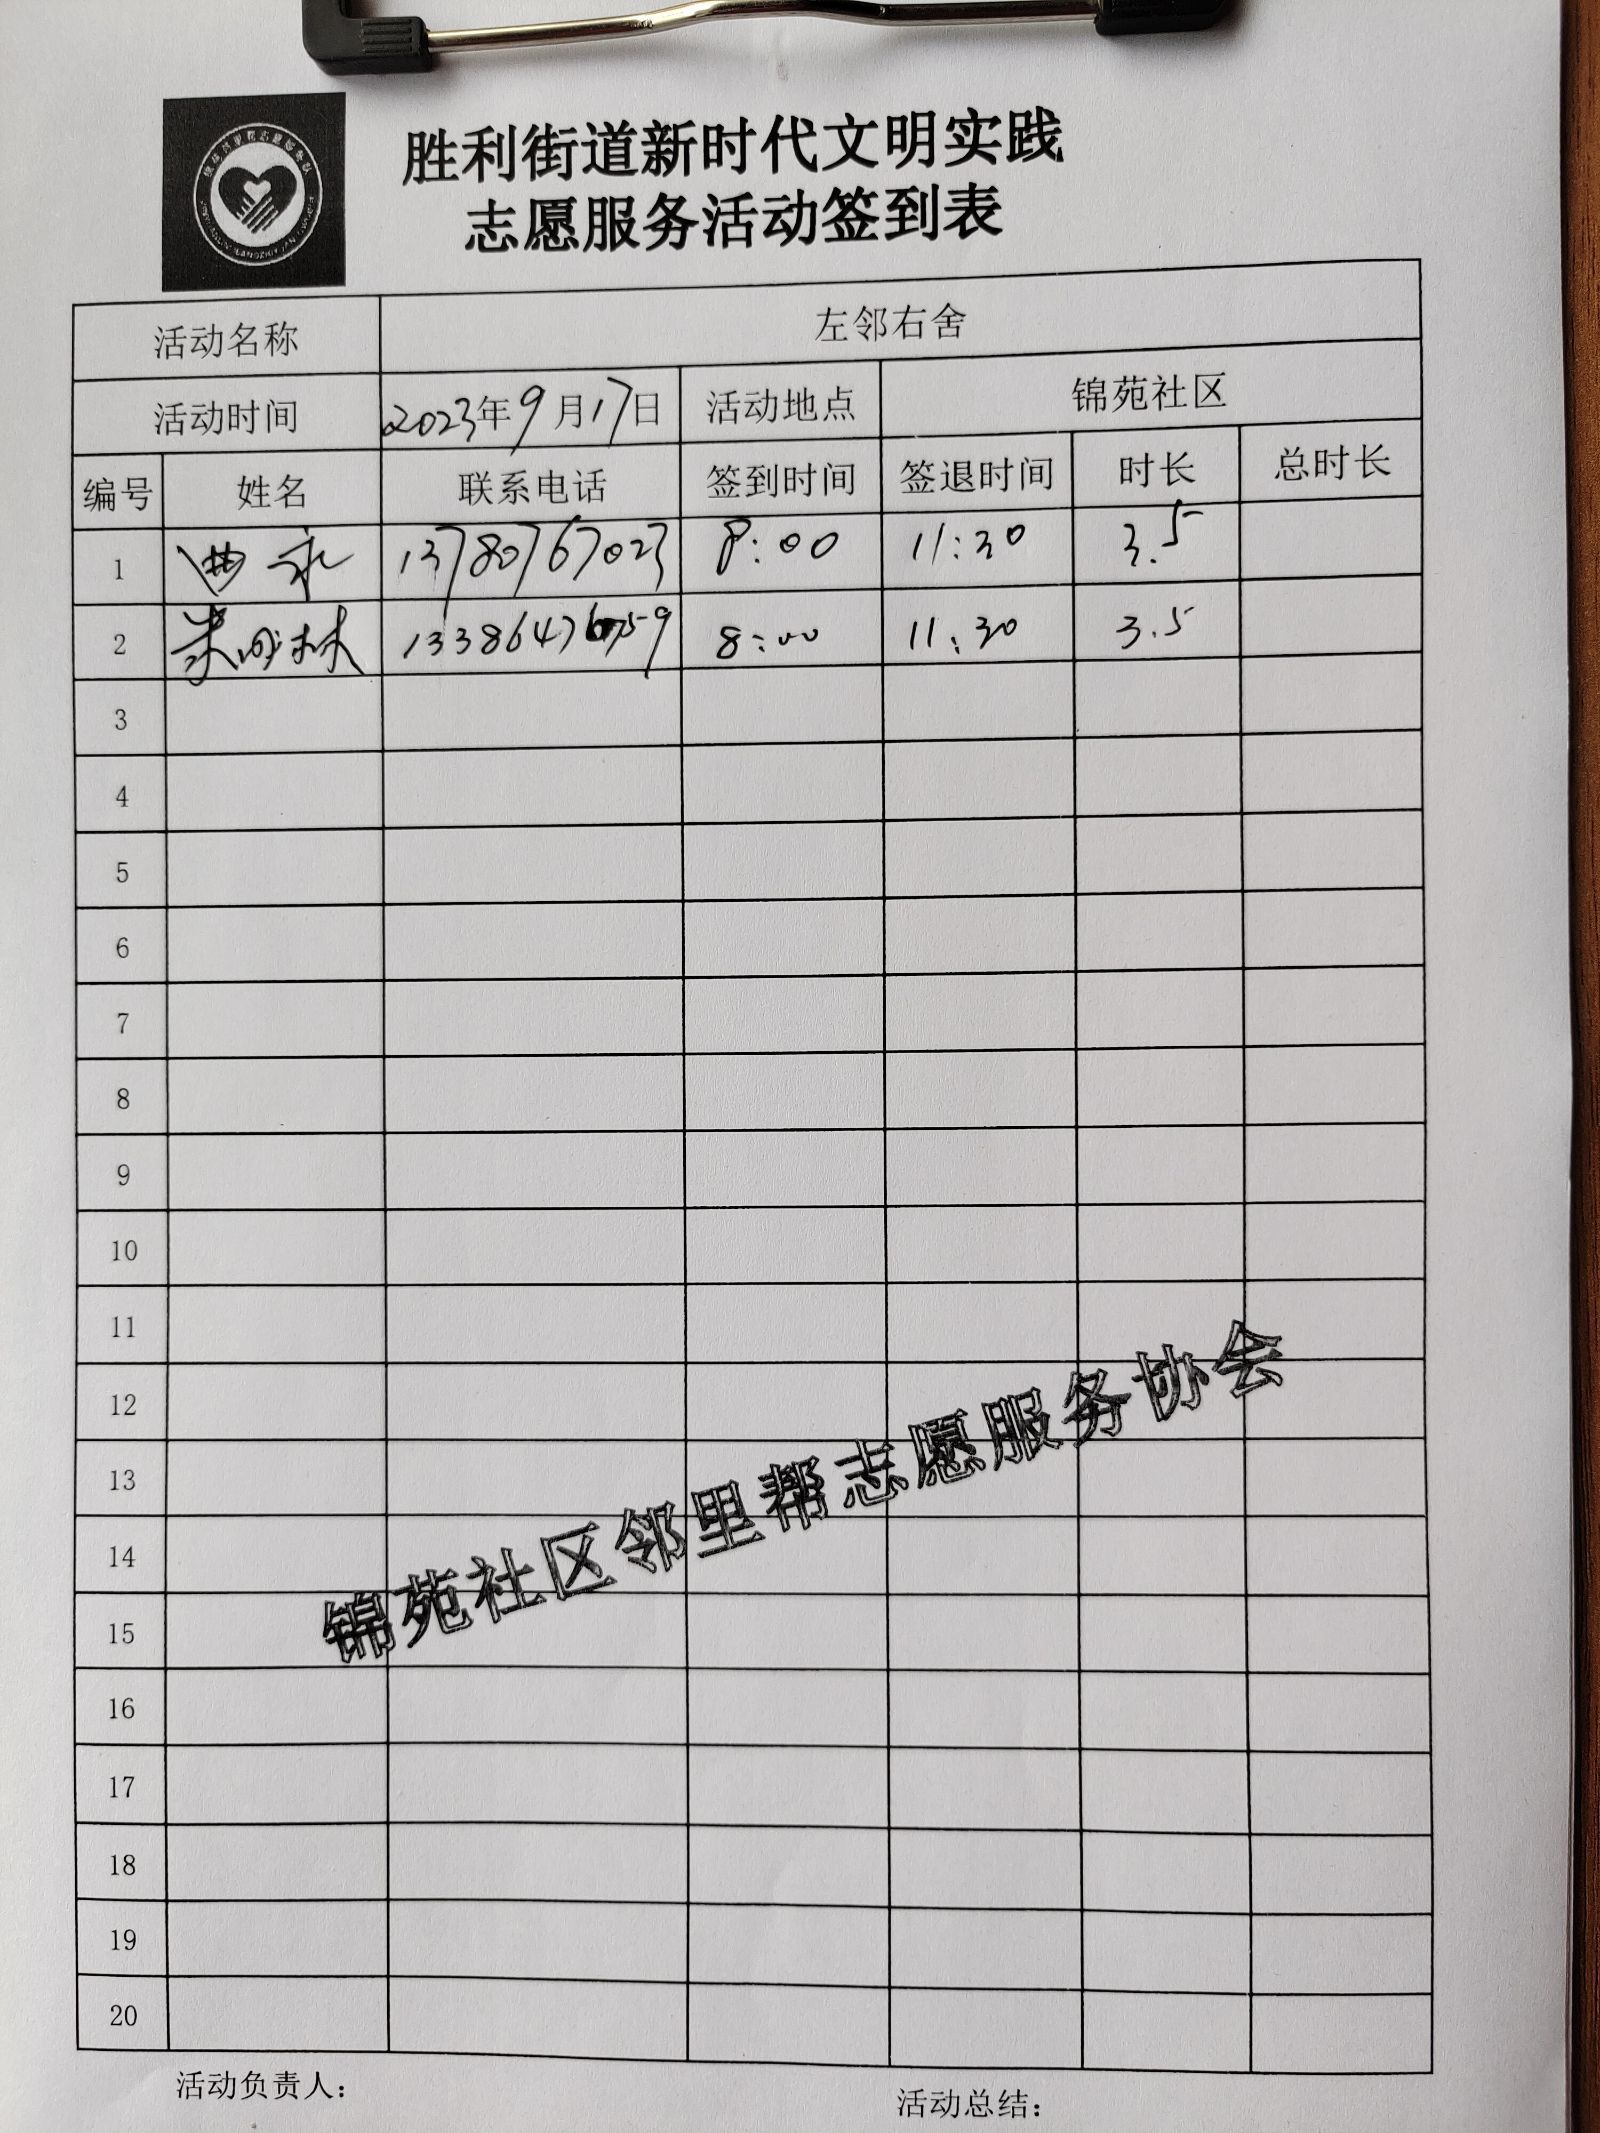 胜利街道新时代文明实践
志愿服务活动签到表
活动名称 左邻右舍
活动时间 2023年9月17日 活动地点 锦苑社区
编号 姓名 联系电话 签到时间 签退时间 时长 总时长
1 曲永 13780767023 8:00 11:30 3.5
2 8:00 11:30 3.5
3
4
5
6
7
8
9
10
11
12
13
14
15
16
17
18
19
20
锦苑社区邻里帮志愿服务协会
活动负责人：
活动总结：